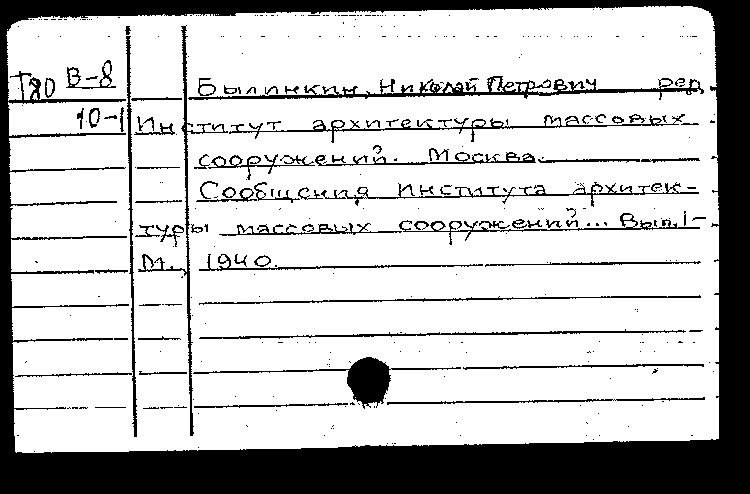 Т80 В-8 Былинкин, Николай Петрович ред.
10-1 Институт архитектуры массовых
сооружений. Москва.
Сообщения Института архитек-
туры массовых сооружений... Вып. 1-
М., 1940.